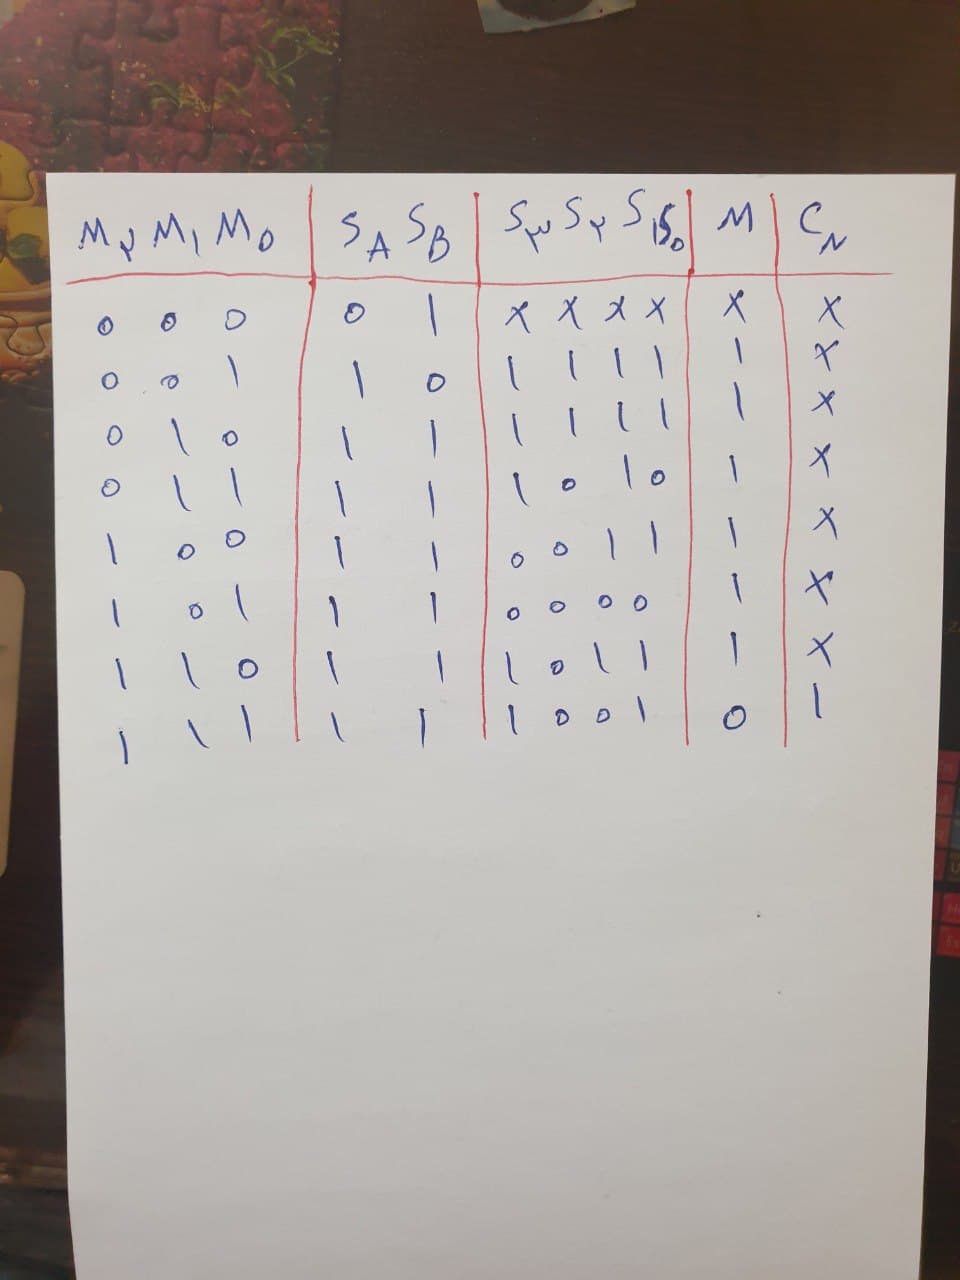 M۲ M۱ M0 SA SB S۳ S۲ S۱ S0 M CN
0 0 0 0 1 x x x x x x
0 0 1 1 0 1 1 1 1 1 x
0 1 0 1 1 1 1 1 1 1 x
0 1 1 1 1 1 0 1 0 1 x
1 0 0 1 1 0 0 1 1 1 x
1 0 1 1 1 0 0 0 0 1 x
1 1 0 1 1 1 0 1 1 1 x
1 1 1 1 1 1 0 0 1 0 1